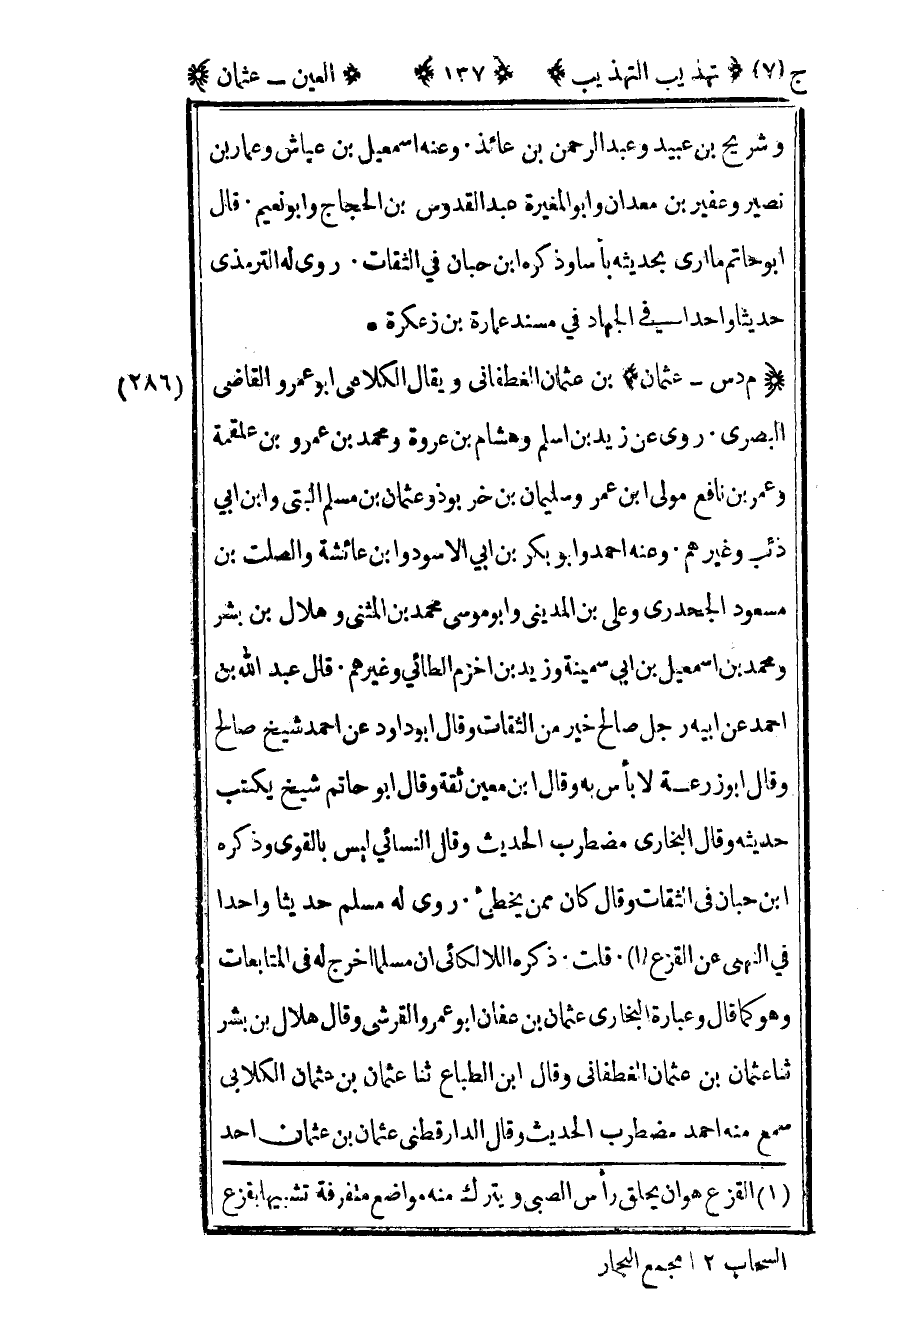 ج (٧) ﴿ تهذيب التهذيب ﴾ ﴿ ١٣٧ ﴾ ﴿ العين ــ عثمان ﴾
و شريح بن عبيد وعبدالرحمن بن عائذ · وعنه اسمعيل بن عياش وعمار بن
نصير وعفير بن معدان وابوالمغيرة عبدالقدوس بن الحجاج وابونعيم · قال
ابوحاتم ماارى بحديثه بأسا وذكره ابن حبان في الثقات · روى له الترمذى
حديثا واحدا في الجهاد في مسند عمارة بن زعكرة •
﴿ م د س ــ عثمان ﴾ بن عثمان الغطفانى ويقال الكلاعى ابوعمرو القاضى (٢٨٦)
البصرى · روى عن زيد بن اسلم وهشام بن عروة ومحمد بن عمرو بن علقمة
وعمر بن نافع مولى ابن عمر وسليمان بن خربوذ وعثمان بن مسلم البتى وابن ابي
ذئب وغيرهم · وعنه احمد وابو بكر بن ابي الاسود وابن عائشة والصلت بن
مسعود الجحدرى وعلي بن المديني وابوموسى محمد بن المثنى وهلال بن بشر
ومحمد بن اسمعيل بن ابي سمينة وزيد بن اخزم الطائي وغيرهم · قال عبد الله بن
احمد عن ابيه رجل صالح خير من الثقات وقال ابوداود عن احمد شيخ صالح
وقال ابوزرعة لا بأس به وقال ابن معين ثقة وقال ابو حاتم شيخ يكتب
حديثه وقال البخارى مضطرب الحديث وقال النسائي ليس بالقوى وذكره
ابن حبان فى الثقات وقال كان ممن يخطئ · روى له مسلم حديثا واحدا
في النهى عن القزع (١) · قلت · ذكره اللالكائى ان مسلما اخرج له فى المتابعات
وهو كما قال وعبارة البخارى عثمان بن عفان ابوعمرو القرشى وقال هلال بن بشر
ثنا عثمان بن عثمان الغطفانى وقال ابن الطباع ثنا عثمان بن عثمان الكلابى
سمع منه احمد مضطرب الحديث وقال الدارقطني عثمان بن عثمان احد
(١) القزع هو ان يحلق رأس الصبى ويترك منه مواضع متفرقة تشبيها بقزع
السحاب ١٢ مجمع البحار